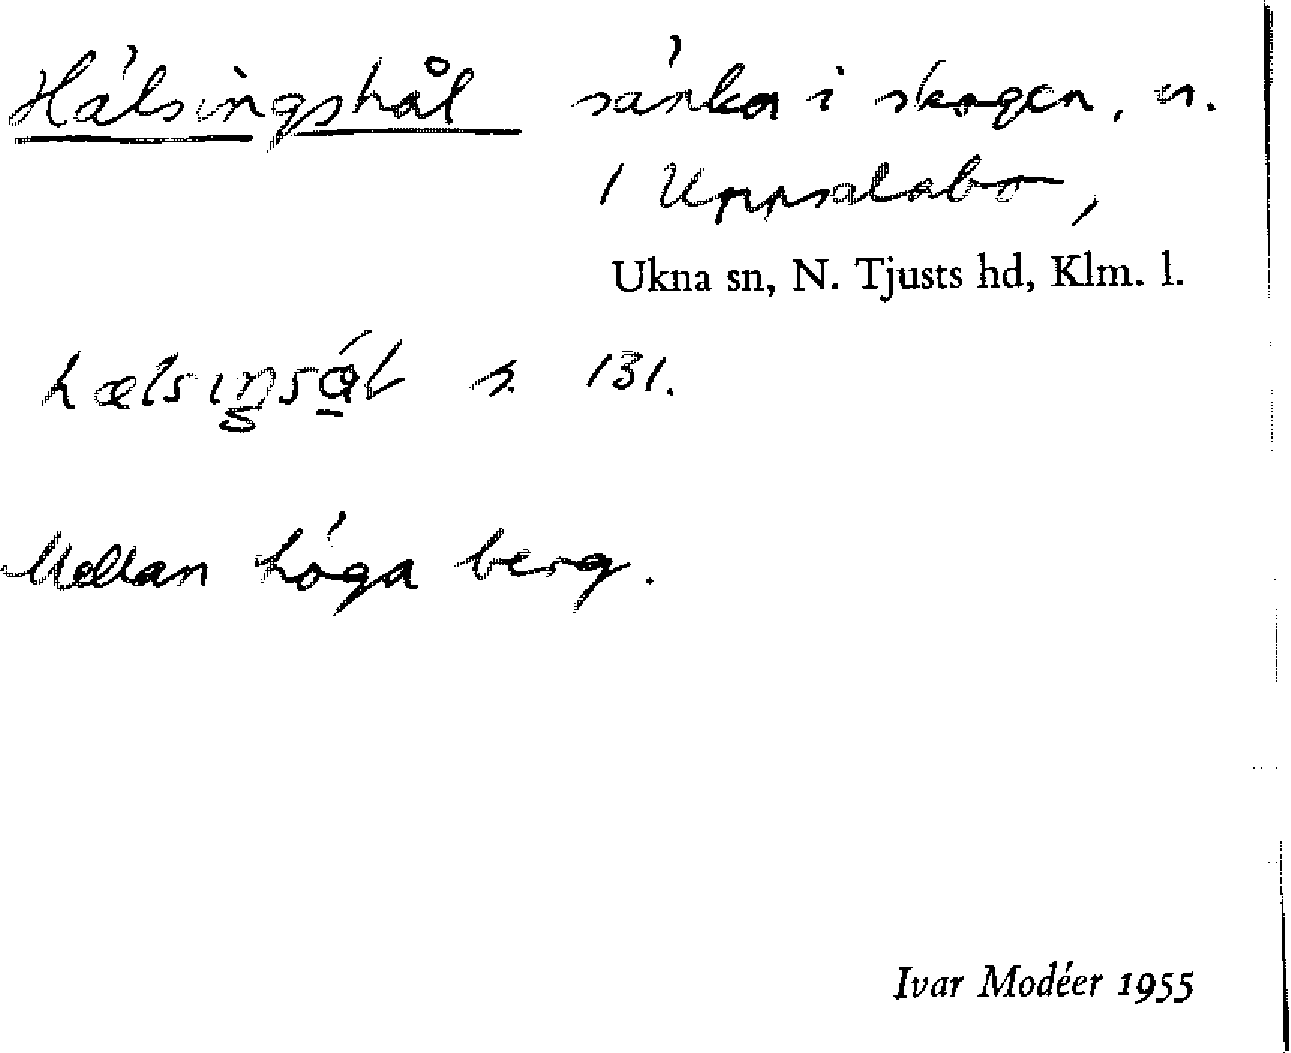 Hälsingshål sänka i skogen, n.
1 Uppsalabo,
Ukna sn, N. Tjusts hd, Klm. l.
hælsiŋsål s. 131.
Mellan höga berg.
Ivar Modéer 1955